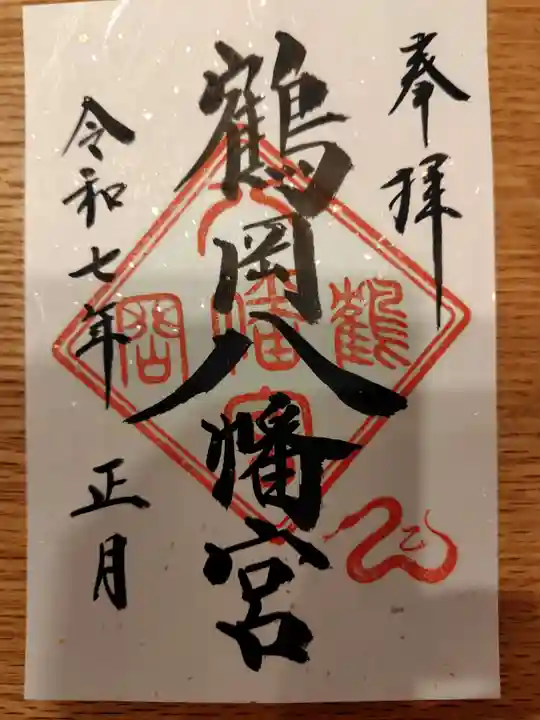 奉拝
鶴岡八幡宮
令和七年 正月
鶴
岡
八幡宮
巳